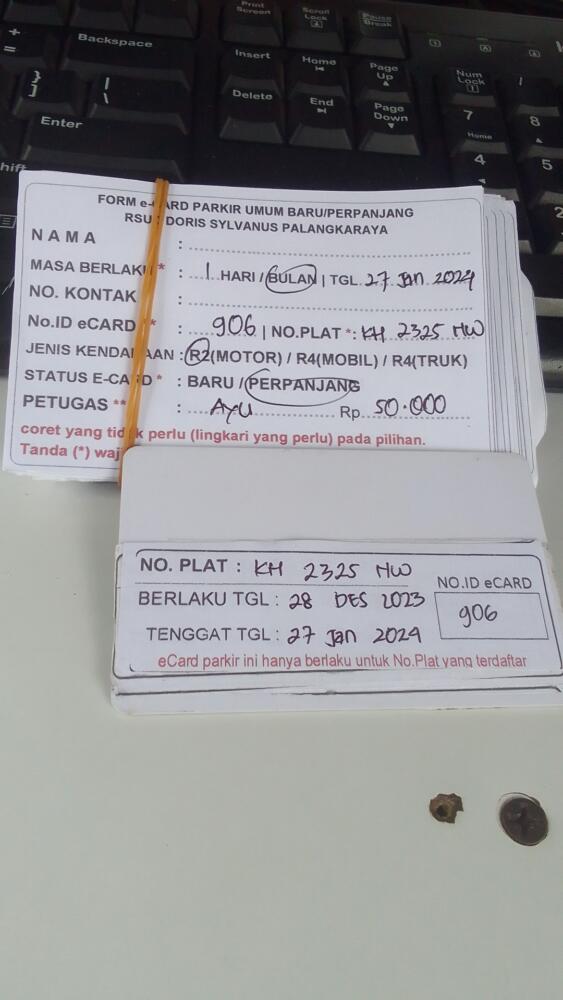 Print Screen
Scroll Lock
Pause Break
+ =
Backspace
Insert
Home
Page Up
Num Lock
/
} ]
| \
Delete
End
Page Down
7 Home
8
Enter
4
5
Shift
2
FORM e-CARD PARKIR UMUM BARU/PERPANJANG
RSUD DORIS SYLVANUS PALANGKARAYA
NAMA :
MASA BERLAKU * : 1 HARI / BULAN | TGL 27 Jan 2024
NO. KONTAK :
No.ID eCARD ** : 906 | NO.PLAT *: KH 2325 MW
JENIS KENDARAAN : R2(MOTOR) / R4(MOBIL) / R4(TRUK)
STATUS E-CARD * : BARU / PERPANJANG
PETUGAS ** : AYU Rp 50.000
coret yang tidak perlu (lingkari yang perlu) pada pilihan.
Tanda (*) waj
NO. PLAT : KH 2325 MW
NO.ID eCARD
BERLAKU TGL : 28 DES 2023
906
TENGGAT TGL : 27 Jan 2024
eCard parkir ini hanya berlaku untuk No.Plat yang terdaftar